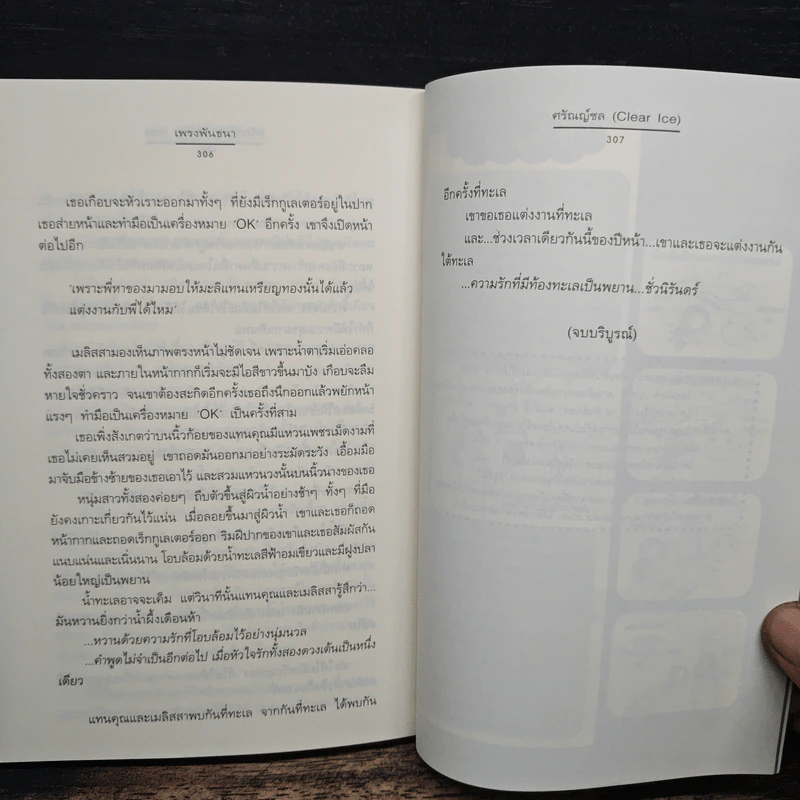 เพรงพันธนา
306
เธอเกือบจะหัวเราะออกมาทั้งๆ ที่ยังมีเร็กกูเลเตอร์อยู่ในปาก
เธอส่ายหน้าและทำมือเป็นเครื่องหมาย ‘OK’ อีกครั้ง เขาจึงเปิดหน้า
ต่อไปอีก
‘เพราะพี่หาของมามอบให้มะลิแทนเหรียญทองนั้นได้แล้ว
แต่งงานกับพี่ได้ไหม’
เมลิสสามองเห็นภาพตรงหน้าไม่ชัดเจน เพราะน้ำตาเริ่มเอ่อคลอ
ทั้งสองตา และภายในหน้ากากก็เริ่มจะมีไอสีขาวขึ้นมาบัง เกือบจะลืม
หายใจชั่วคราว จนเขาต้องสะกิดอีกครั้งเธอถึงนึกออกแล้วพยักหน้า
แรงๆ ทำมือเป็นเครื่องหมาย ‘OK’ เป็นครั้งที่สาม
เธอเพิ่งสังเกตว่าบนนิ้วก้อยของแทนคุณมีแหวนเพชรเม็ดงามที่
เธอไม่เคยเห็นสวมอยู่ เขาถอดมันออกมาอย่างระมัดระวัง เอื้อมมือ
มาจับมือข้างซ้ายของเธอเอาไว้ และสวมแหวนวงนั้นบนนิ้วนางของเธอ
หนุ่มสาวทั้งสองค่อยๆ ถีบตัวขึ้นสู่ผิวน้ำอย่างช้าๆ ทั้งๆ ที่มือ
ยังคงเกาะเกี่ยวกันไว้แน่น เมื่อลอยขึ้นมาสู่ผิวน้ำ เขาและเธอก็ถอด
หน้ากากและถอดเร็กกูเลเตอร์ออก ริมฝีปากของเขาและเธอสัมผัสกัน
แนบแน่นและเนิ่นนาน โอบล้อมด้วยน้ำทะเลสีฟ้าอมเขียวและมีฝูงปลา
น้อยใหญ่เป็นพยาน
น้ำทะเลอาจจะเค็ม แต่วินาทีนั้นแทนคุณและเมลิสสารู้สึกว่า...
มันหวานยิ่งกว่าน้ำผึ้งเดือนห้า
...หวานด้วยความรักที่โอบล้อมไว้อย่างนุ่มนวล
...คำพูดไม่จำเป็นอีกต่อไป เมื่อหัวใจรักทั้งสองดวงเต้นเป็นหนึ่ง
เดียว
แทนคุณและเมลิสสาพบกันที่ทะเล จากกันที่ทะเล ได้พบกัน
ศรัณญ์ชล (Clear Ice)
307
อีกครั้งที่ทะเล
เขาขอเธอแต่งงานที่ทะเล
และ...ช่วงเวลาเดียวกันนี้ของปีหน้า...เขาและเธอจะแต่งงานกัน
ใต้ทะเล
...ความรักที่มีท้องทะเลเป็นพยาน...ชั่วนิรันดร์
(จบบริบูรณ์)